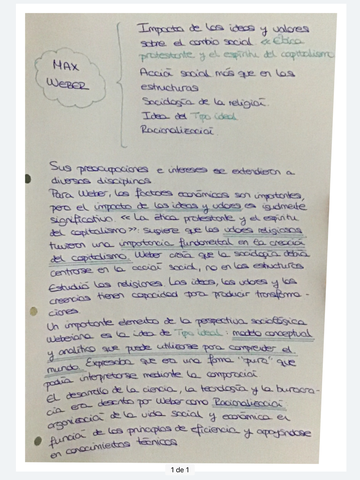 MAX
WEBER
Impacto de las ideas y valores
sobre el cambio social. «Ética
protestante y el espíritu del capitalismo»
Acción social más que en las
estructuras
Sociología de la religión
Idea del Tipo ideal
Racionalización
Sus preocupaciones e intereses se extendieron a
diversas disciplinas
Para Weber, los factores económicos son importantes,
pero el impacto de las ideas y valores es igualmente
significativo. «La ética protestante y el espíritu
del capitalismo». Sugiere que los valores religiosos
tuvieron una importancia fundamental en la creación
del capitalismo. Weber creía que la sociología debía
centrarse en la acción social, no en las estructuras
Estudió las religiones. Las ideas, los valores y las
creencias tienen capacidad para producir transforma-
ciones
Un importante elemento de la perspectiva sociológica
Weberiana es la idea de Tipo ideal: modelo conceptual
y analítico que puede utilizarse para comprender el
mundo. Expresaba que era una forma "pura" que
podía interpretarse mediante la comparación
El desarrollo de la ciencia, la tecnología y la burocra-
cia era descrito por Weber como Racionalización:
organización de la vida social y económica en
función de los principios de eficiencia y apoyándose
en conocimientos técnicos
1 de 1